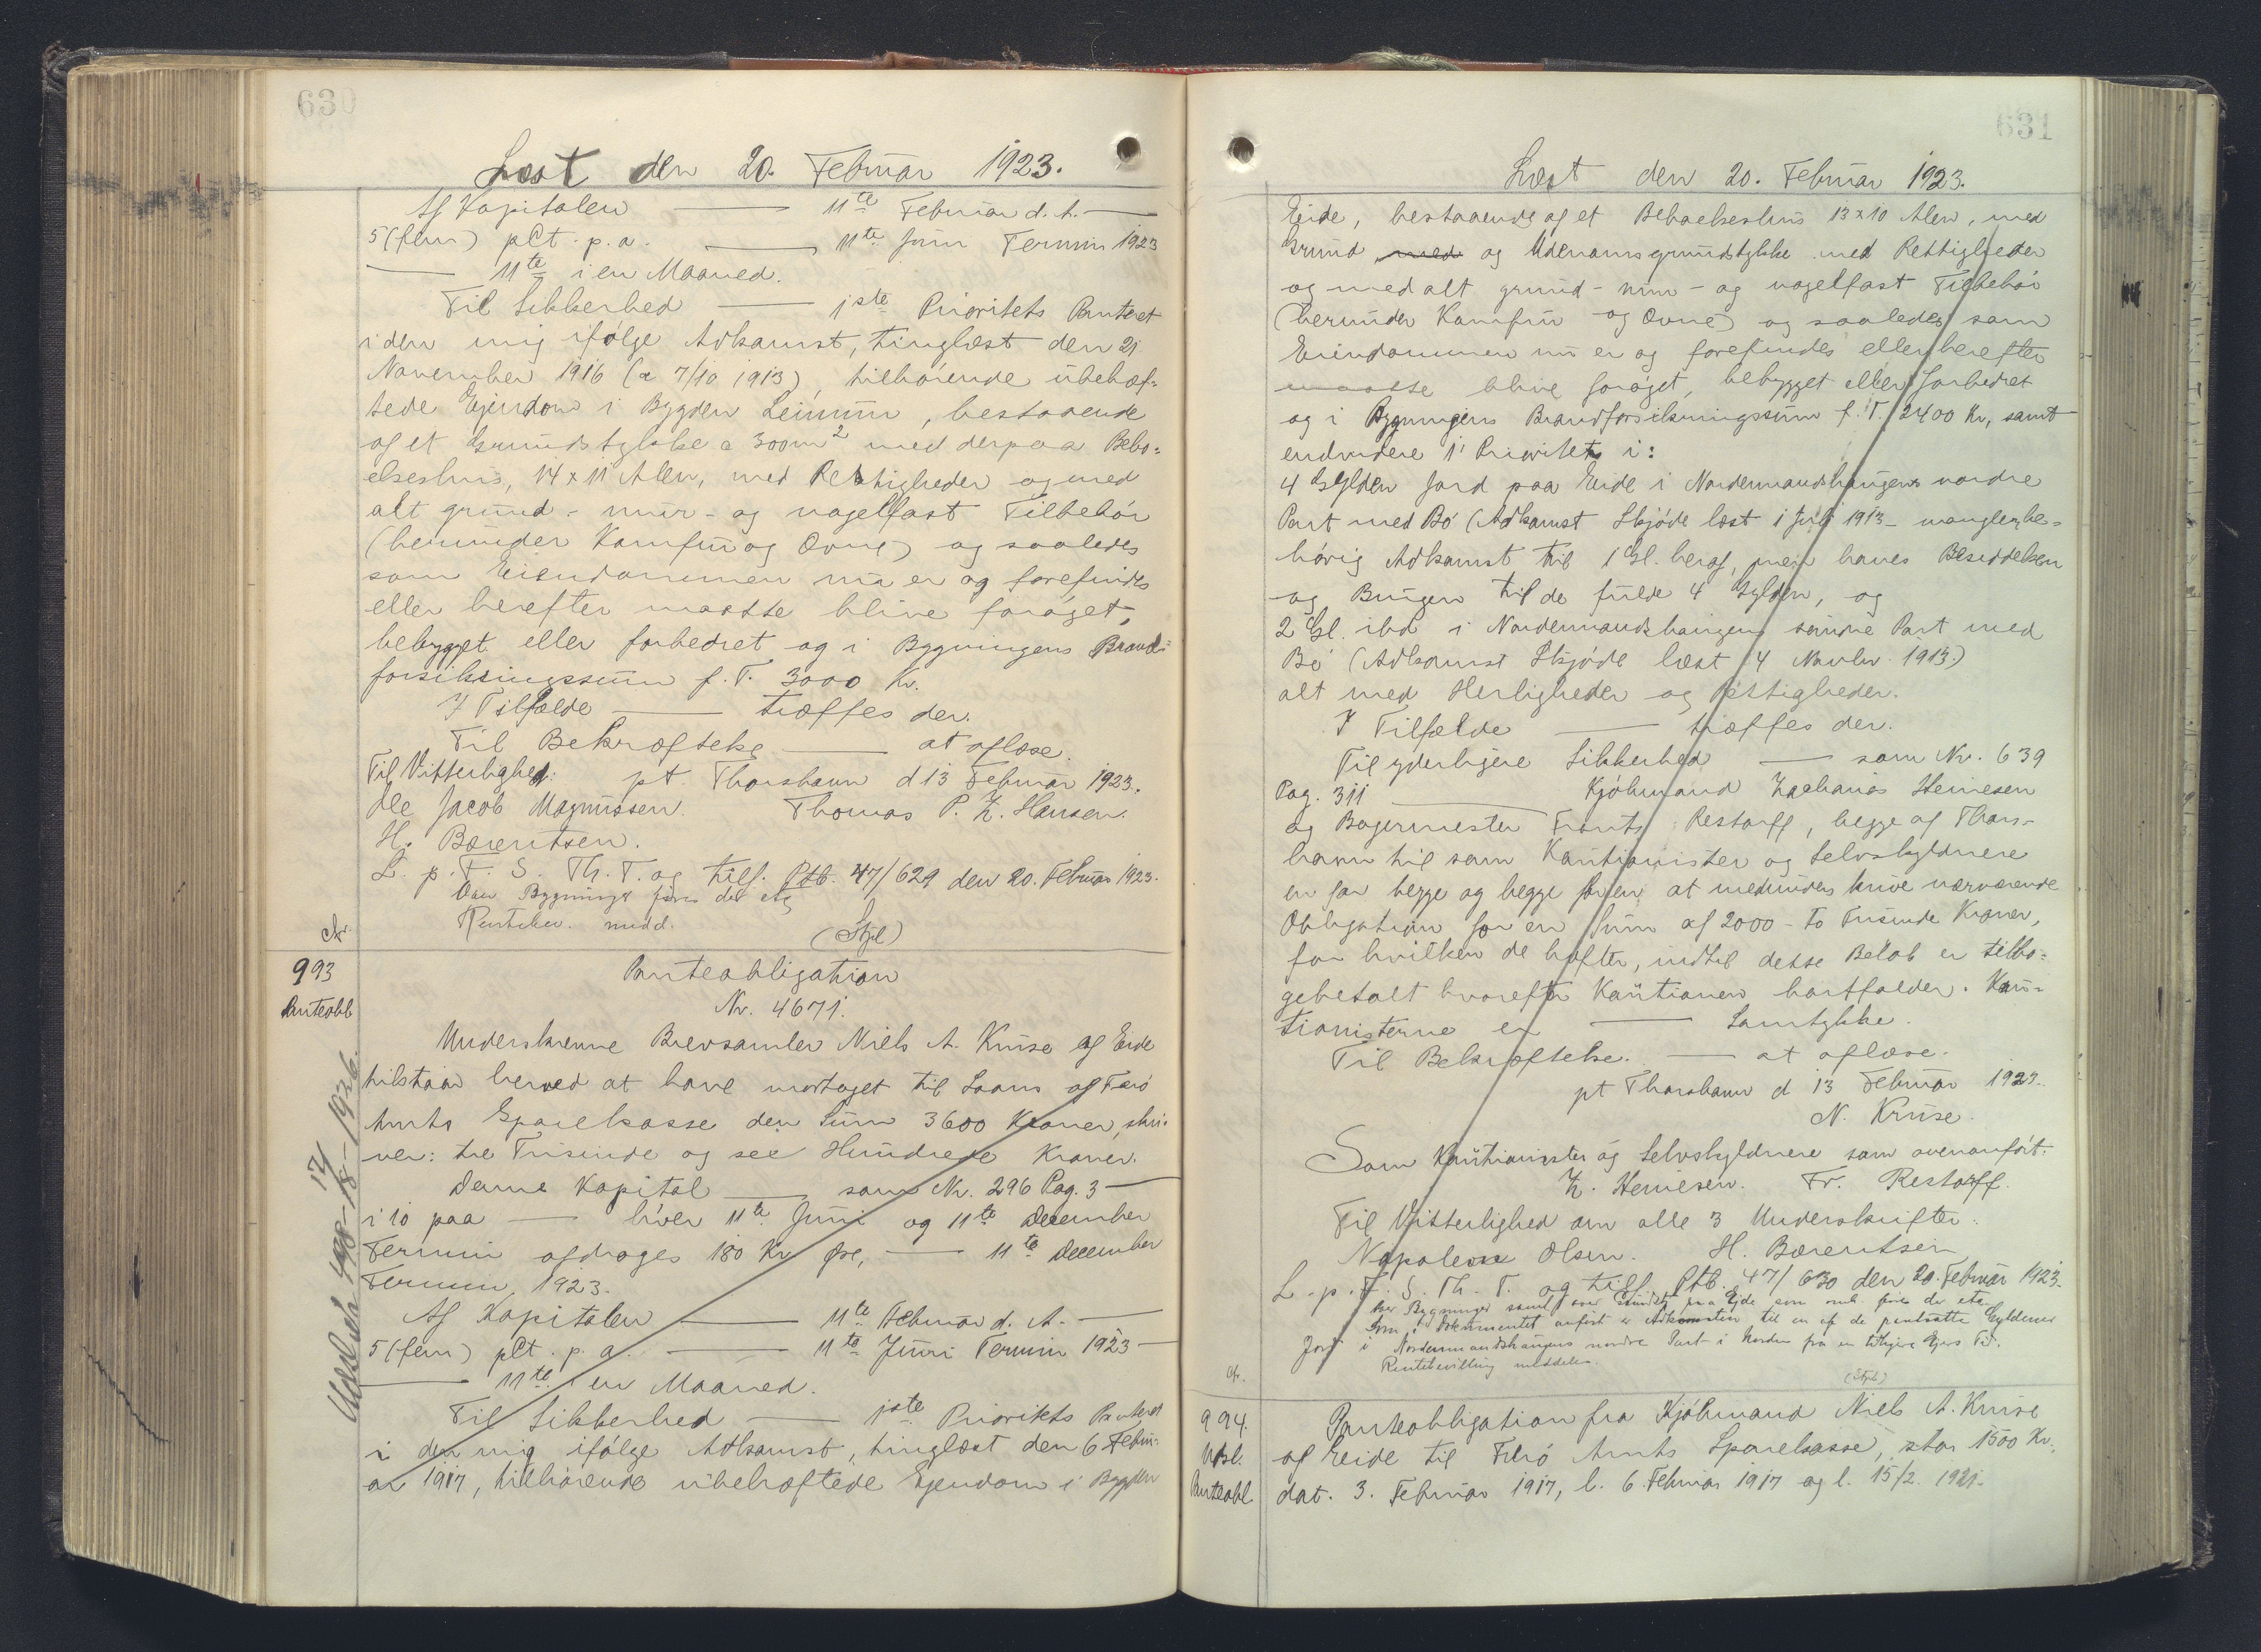 630
Læst den 20. Februar 1923.
Af Kapitalen — 11te Februar d. A. —
5 (fem) pCt. p. a. — 11te Juni Termin 1923
— 11te i en Maaned.
Til Sikkerhed — 1ste Prioritets Panteret
i den mig ifølge Adkomst, tinglæst den 21
November 1916 (a 7/10 1913), tilhørende ubehæf-
tede Ejendom i Bygden Leirum, bestaaende
af et Grundstykke a 300 m2 med derpaa Bebo-
elseshus, 14 x 11 Alen, med Rettigheder og med
alt grund- mur- og nagelfast Tilbehør
(herunder Komfur og Ovne) og saaledes
som Eiendommen nu er og forefindes
eller herefter maatte blive forøget,
bebygget eller forbedret og i Bygningens Brand-
forsikringssum f. T. 3000 Kr.
I Tilfælde — træffes der.
Til Bekræftelse — at aflæse.
Til Vitterlighed: pt. Thorshavn d 13 Februar 1923.
Ole Jacob Magnussen. Thomas P. Z. Hansen.
H. Bærentsen.
L. p. F. S. Th. T. og tilf. Ptb. 47/629 den 20. Februar 1923.
Om Bygnings føres der etc
Rentebev. medd.
(Stpl)
993
Panteobl
Panteobligation
Nr. 4671.
Underskrevne Brevsamler Niels A. Kruse af Eide
tilstaar herved at have modtaget til Laans af Færø
Amts Sparekasse den Sum 3600 Kroner, skri-
ver: tre Tusinde og sex Hundrede Kroner.
Denne Kapital — som Nr. 296 Pag. 3 —
i 10 paa — hver 11te Juni og 11te December
Termin afdrages 180 Kr Øre, — 11te December
Termin 1923.
Af Kapitalen — 11te Februar d. A. —
5 (fem) pCt. p. a. — 11te Juni Termin 1923 —
— 11te i en Maaned.
Til Sikkerhed — 1ste Prioritets Panteret
i den mig ifølge Adkomst, tinglæst den 6 Febru-
ar 1917, tilhørende ubehæftede Ejendom i Bygden
631
Læst den 20. Februar 1923.
Eide, bestaaende af et Beboelseshus 13 x 10 Alen, med
Grund med og Udenomsgrundstykke med Rettigheder
og med alt grund- mur- og nagelfast Tilbehør
(herunder Komfur og Ovne) og saaledes som
Eiendommen nu er og forefindes eller herefter
maatte blive forøget, bebygget eller forbedret
og i Bygningens Brandforsikringssum f. T. 2400 Kr, samt
endvidere 1' Prioritet i:
4 Gylden Jord paa Eide i Nordenmandshaugens nordre
Part med Bø (Adkomst Skjøde læst 1 Juli 1913 - mangler be-
hørig Adkomst til 1 Gl. heraf, men haves Besiddelsen
og Brugen til de fulde 4 Gylden, og
2 Gl. ibd i Nordenmandshaugens søndre Part med
Bø (Adkomst Skjøde læst 4 Novbr. 1913.)
alt med Herligheder og Rettigheder.
I Tilfælde — træffes der.
Til yderligere Sikkerhed — som Nr. 639
Pag. 311 — Kjøbmand Zacharias Heinesen
og Bagermester Frants Restorff, begge af Thors-
havn til som Kautionister og Selvskyldnere
en for begge og begge for en at medunderskrive nærværende
Obligation for en Sum af 2000 - to Tusinde Kroner,
for hvilken de hæfter, indtil dette Beløb er tilba-
gebetalt hvorefter Kautionen bortfalder. Kau-
tionisterne er — Samtykke.
Til Bekræftelse. — at aflæse.
pt Thorshavn d 13 Februar 1923.
N. Kruse.
Som Kautionister og Selvskyldnere som ovenanført.
Z. Heinesen. Fr. Restorff.
Til Vitterlighed om alle 3 Underskrifter.
Napoleon Olsen. H. Bærentsen
L. p. F. S. Th. T. og tilf. Ptb. 47/630 den 20. Februar 1923.
Om Bygninger samt over Grundst. paa Ejde som omh. føres der etc.
Som i Dokumentet anført er Adkomsten til en af de pantsatte Gyldener
Jord i Nordenmandshaugens nordre Part i Norden fra en tidligere Ejers Tid.
Rentebevilling meddeles.
(Stpl.)
994.
Udsl.
Panteobl
Panteobligation fra Kjøbmand Niels A. Kruse
af Eide til Færø Amts Sparekasse, stor 1500 Kr.
dat. 3. Februar 1917, l. 6. Februar 1917 og l. 15/2 1921.